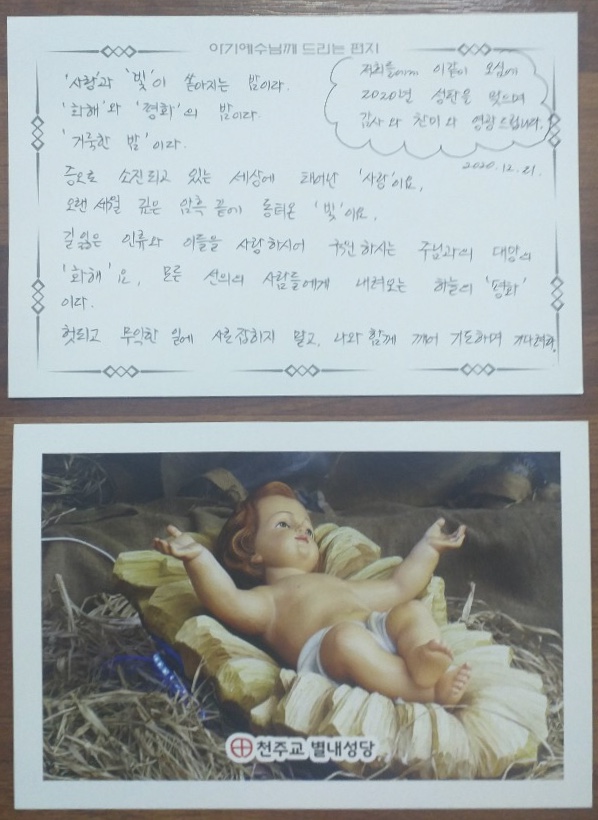 아기예수님께 드리는 편지
저희들에게 이같이 오심에
2020년 성탄을 맞으며
감사와 찬미와 영광 드립니다.
2020.12.21.
'사랑'과 '빛'이 쏟아지는 밤이라.
'화해'와 '평화'의 밤이라.
'거룩한 밤'이라.
증오로 소진되고 있는 세상에 태어난 '사랑'이요,
오랜 세월 깊은 암흑 끝에 동터온 '빛'이요,
길 잃은 인류와 이들을 사랑하시어 구원하시는 주님과의 대망의
'화해'요, 모든 선의의 사람들에게 내려오는 하늘의 '평화'
이다.
헛되고 무익한 일에 사로잡히지 말고, 나와 함께 깨어 기도하며 기다려라.
천주교 별내성당